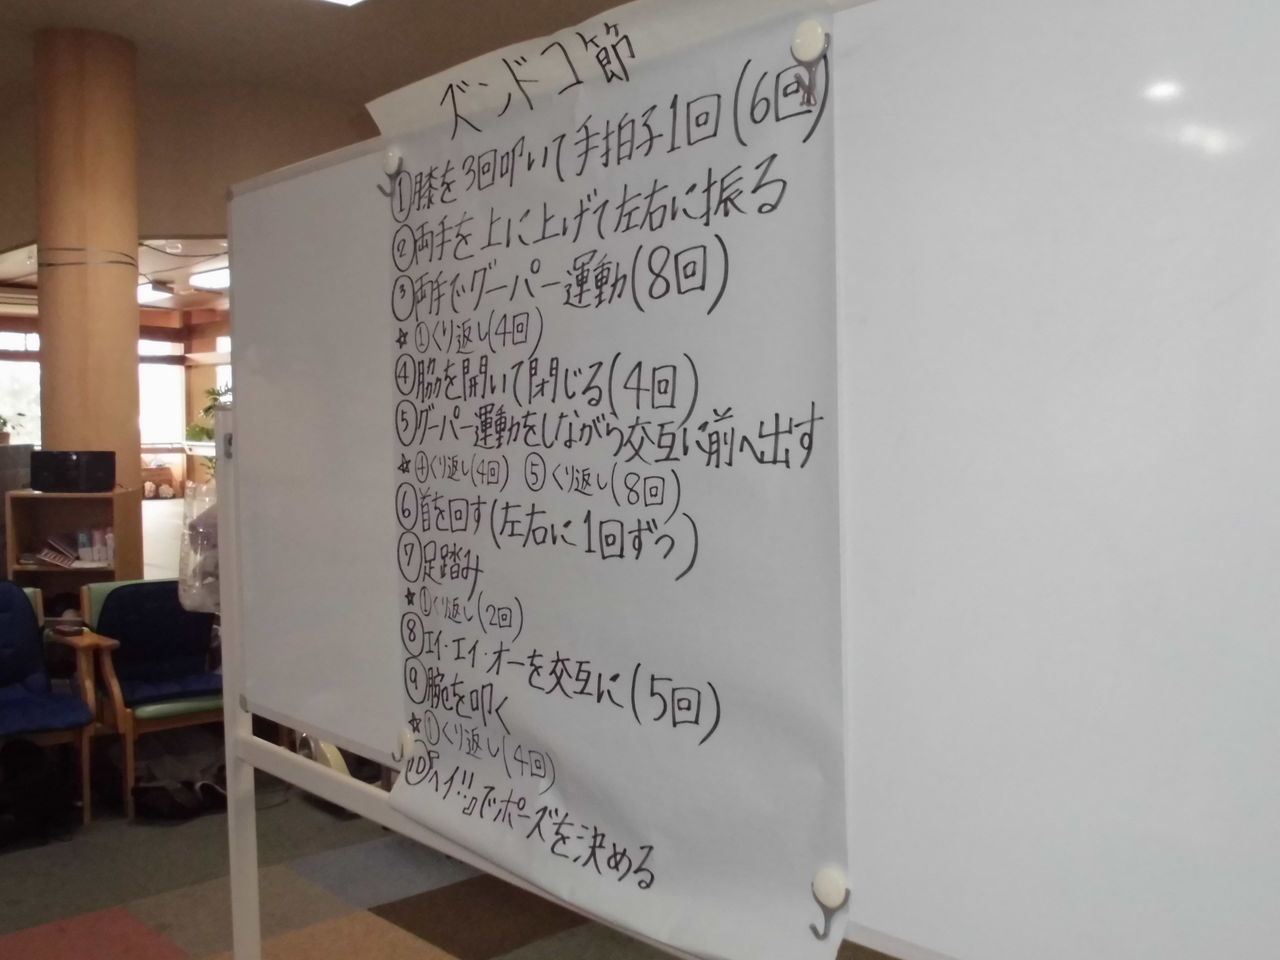 ズンドコ節
①膝を3回叩いて手拍子1回(6回)
②両手を上に上げて左右に振る
③両手でグーパー運動(8回)
☆①くり返し(4回)
④脇を開いて閉じる(4回)
⑤グーパー運動をしながら交互に前へ出す
☆④くり返し(4回) ⑤くり返し(8回)
⑥首を回す(左右に1回ずつ)
⑦足踏み
☆①くり返し(2回)
⑧エイ・エイ・オーを交互に(5回)
⑨腕を叩く
☆①くり返し(4回)
⑩『ヘイ!!』でポーズを決める